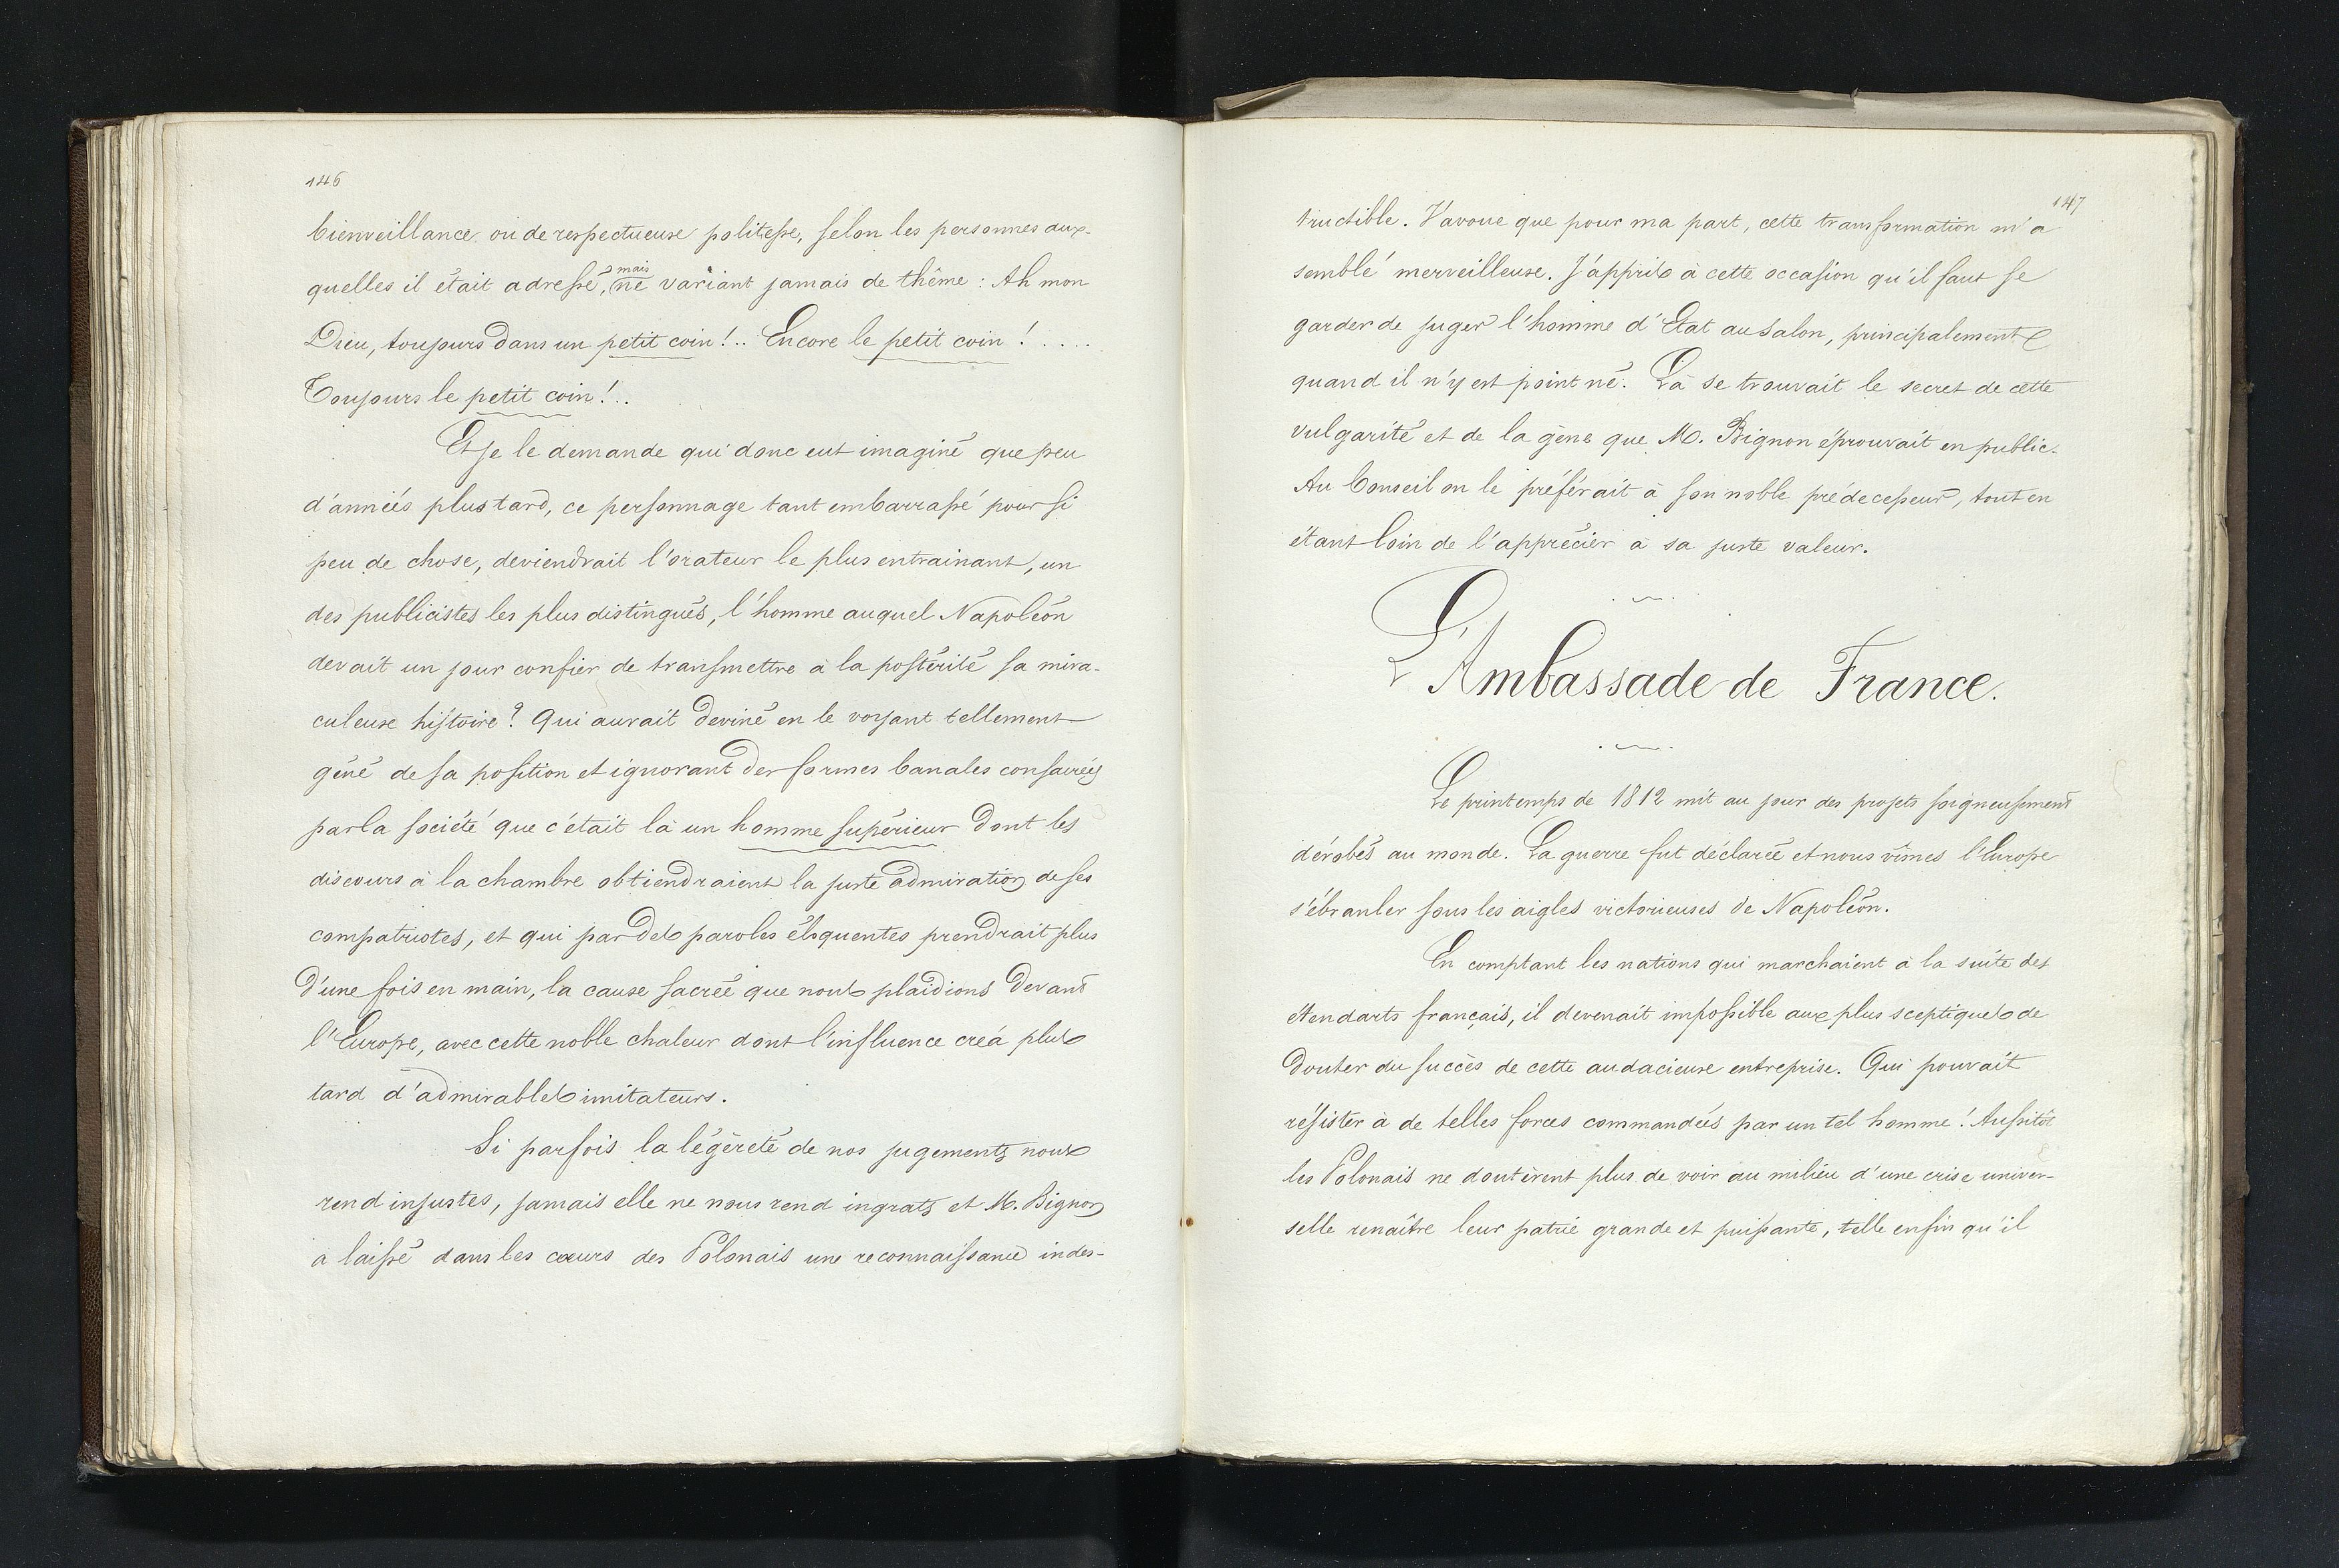 146
bienveillance ou de respectueuse politesse, selon les personnes aux-
quelles il était adressé, mais ne variant jamais de thême : Ah mon
Dieu, toujours dans un petit coin!.. Encore le petit coin!.....
Toujours le petit coin!..
Et je le demande qui donc eut imaginé que peu
d'années plus tard, ce personnage tant embarrassé pour si
peu de chose, deviendrait l'orateur le plus entrainant, un
des publicistes les plus distingués, l'homme auquel Napoléon
devait un jour confier de transmettre à la postérité sa mira-
culeuse histoire? Qui aurait deviné en le voyant tellement
gêné de sa position et ignorant des formes banales consacrées
par la société que c'était là un homme supérieur dont les
discours à la chambre obtiendraient la juste admiration de ses
compatriotes, et qui par des paroles éloquentes prendrait plus
d'une fois en main, la cause sacrée que nous plaidions devant
l'Europe, avec cette noble chaleur dont l'influence créa plus
tard d'admirables imitateurs.
Si parfois la légèreté de nos jugements nous
rend injustes, jamais elle ne nous rend ingrats et M. Bignon
a laissé dans les cœurs des Polonais une reconnaissance indes-
147
tructible. J'avoue que pour ma part, cette transformation m'a
semblé merveilleuse. J'appris à cette occasion qu'il faut se
garder de juger l'homme d'État au salon, principalement
quand il n'y est point né. Là se trouvait le secret de cette
vulgarité et de la gène que M. Bignon éprouvait en public.
Au Conseil on le préférait à son noble prédecesseur, tout en
étant loin de l'apprécier à sa juste valeur.
L'Ambassade de France.
Le printemps de 1812 mit au jour des projets soigneusement
dérobés au monde. La guerre fut déclarée et nous vîmes l'Europe
s'ébranler sous les aigles victorieuses de Napoléon.
En comptant les nations qui marchaient à la suite des
étendarts français, il devenait impossible aux plus sceptiques de
douter du succès de cette audacieuse entreprise. Qui pouvait
résister à de telles forces commandées par un tel homme! Aussitôt
les Polonais ne doutèrent plus de voir au milieu d'une crise univer-
selle renaître leur patrie grande et puissante, telle enfin qu'il